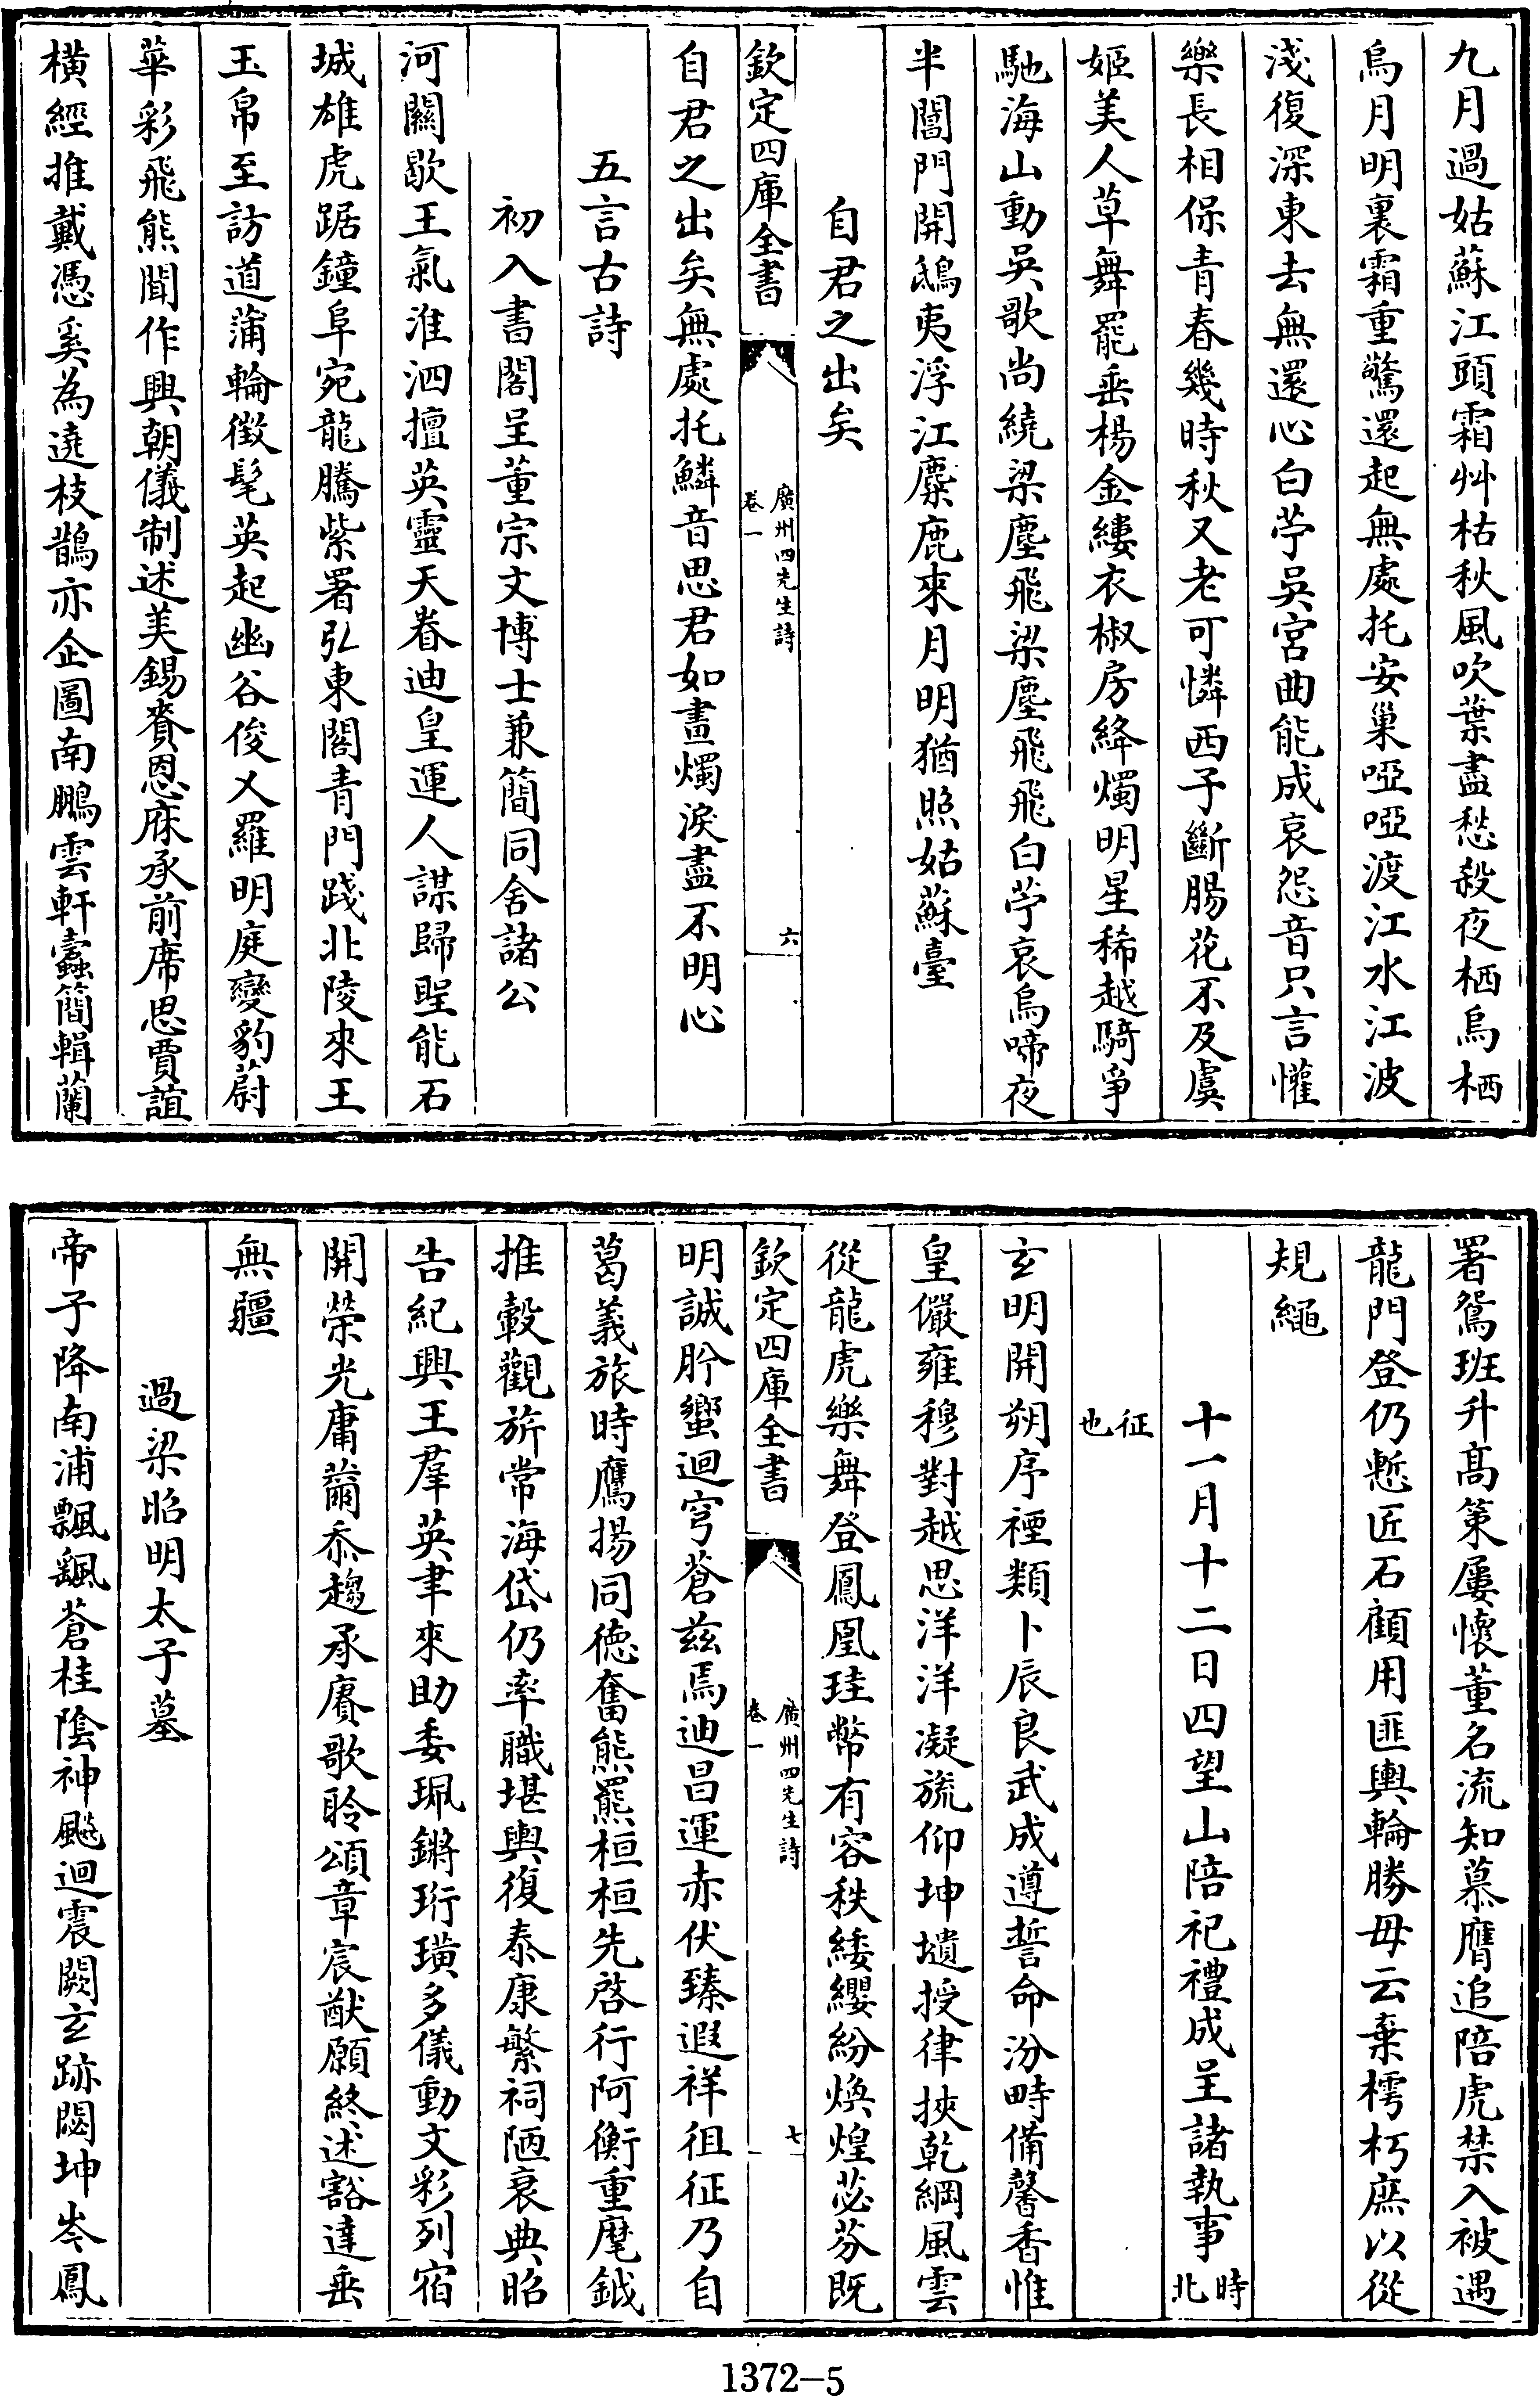 九月過姑蘇江頭霜艸枯秋風吹葉盡愁殺夜栖烏栖
烏月明裏霜重驚還起無處托安巢啞啞渡江水江波
淺復深東去無還心白苧吳宮曲能成哀怨音只言懽
樂長相保青春幾時秋又老可憐西子斷腸花不及虞
姬美人草舞罷垂楊金縷衣椒房絳燭明星稀越騎爭
馳海山動吳歌尚繞梁塵飛梁塵飛飛白苧哀烏啼夜
半閶門開鴟夷浮江麋鹿來月明猶照姑蘇臺
自君之出矣
欽定四庫全書
廣州四先生詩
卷一
六
自君之出矣無處托鱗音思君如畫燭淚盡不明心
五言古詩
初入書閣呈董宗文博士兼簡同舍諸公
河關歇王氣淮泗擅英靈天眷迪皇運人謀歸聖能石
城雄虎踞鐘阜宛龍騰紫署弘東閣青門踐北陵來王
玉帛至訪道蒲輪徵髦英起幽谷俊乂羅明庭變豹蔚
華彩飛熊聞作興朝儀制述美錫賚恩庥承前席思賈誼
橫經推戴憑奚為遶枝鵲亦企圖南鵬雲軒蠹簡輯蘭
署鴛班升高策屢懷董名流知慕膺追陪虎禁入被遇
龍門登仍慙匠石顧用匪輿輪勝毋云棄樗朽庶以從
規繩
十一月十二日四望山陪祀禮成呈諸執事時北
征也
玄明開朔序禋類卜辰良武成遵誓命汾畤備馨香惟
皇儼雍穆對越思洋洋凝旒仰坤壝授律挾乾綱風雲
從龍虎樂舞登鳳凰珪幣有容秩緌纓紛煥煌苾芬既
欽定四庫全書
廣州四先生詩
卷一
七
明誠肸蠁迴穹蒼茲焉迪昌運赤伏臻遐祥徂征乃自
葛義旅時鷹揚同德奮熊羆桓桓先啓行阿衡重麾鉞
推轂觀旂常海岱仍率職堪輿復泰康繁祠陋衰典昭
告紀興王羣英聿來助委珮鏘珩璜多儀動文彩列宿
開榮光庸薾忝趨承賡歌聆頌章宸猷願終述豁達垂
無疆
過梁昭明太子墓
帝子降南浦飄颻蒼桂陰神飈迴震闕玄跡閟坤岑鳳
1372-5